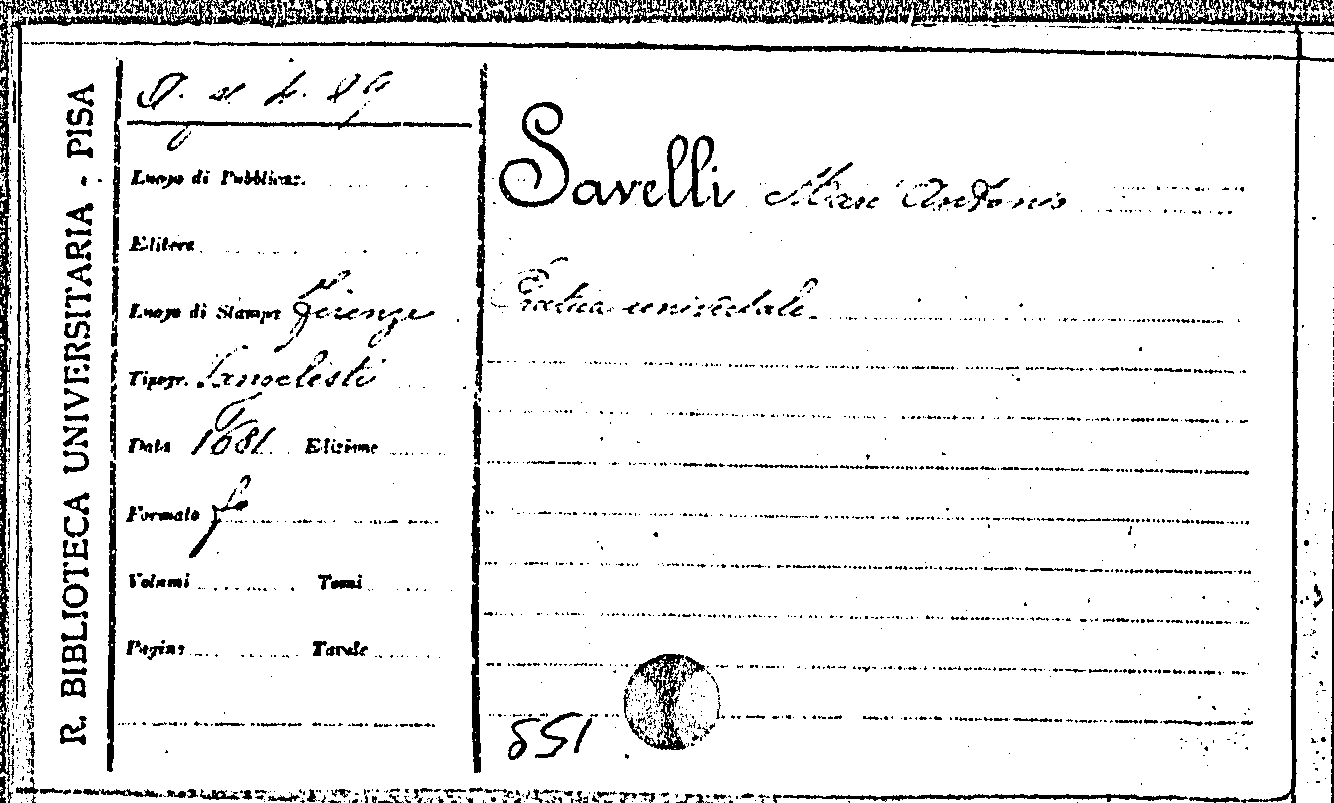 R. BIBLIOTECA UNIVERSITARIA - PISA
Luogo di Pubblicaz.
Editore
Luogo di Stampa Firenze
Tipogr.
Data 1681 Edizione
Formato f°
Volumi Tomi
Pagine Tavole
Savelli Marc Antonio
Pratica universale
551